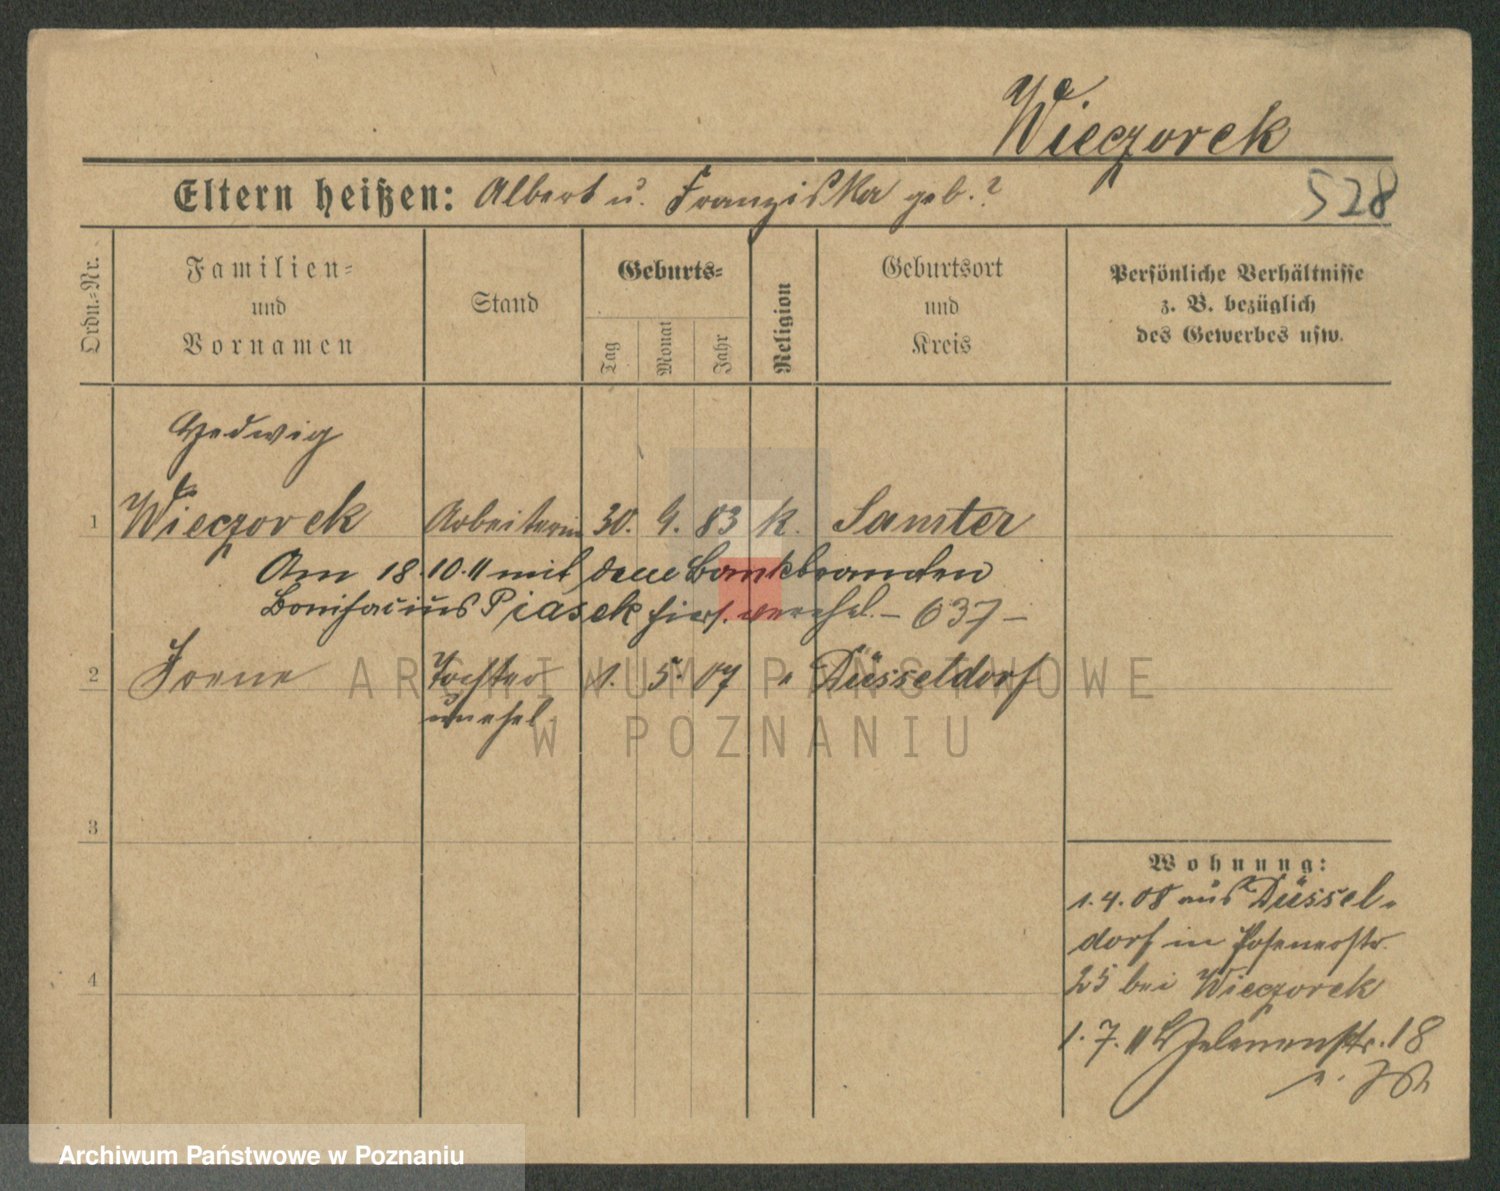 Wieczorek
Eltern heißen: Albert u. Franziska geb. ?
528
Ordn.=Nr.
Familien=
und
Vornamen
Stand
Geburts=
Tag
Monat
Jahr
Religion
Geburtsort
und
Kreis
Persönliche Verhältnisse
z. B. bezüglich
des Gewerbes usw.
Hedwig
1 Wieczorek Arbeiterin 30. 9. 83 k. Samter
Am 18.10.11 mit dem Bankbeamten
Bonifacius Piasek hier verehel. – 637 –
2 Irene Tochter 1. 5. 07 " Düsseldorf
unehel.
3
4
Wohnung:
1.4.08 aus Düssel-
dorf in Posenerstr.
25 bei Wieczorek
1.7.11 Helenenstr. 18
ARCHIWUM PAŃSTWOWE
W POZNANIU
Archiwum Państwowe w Poznaniu